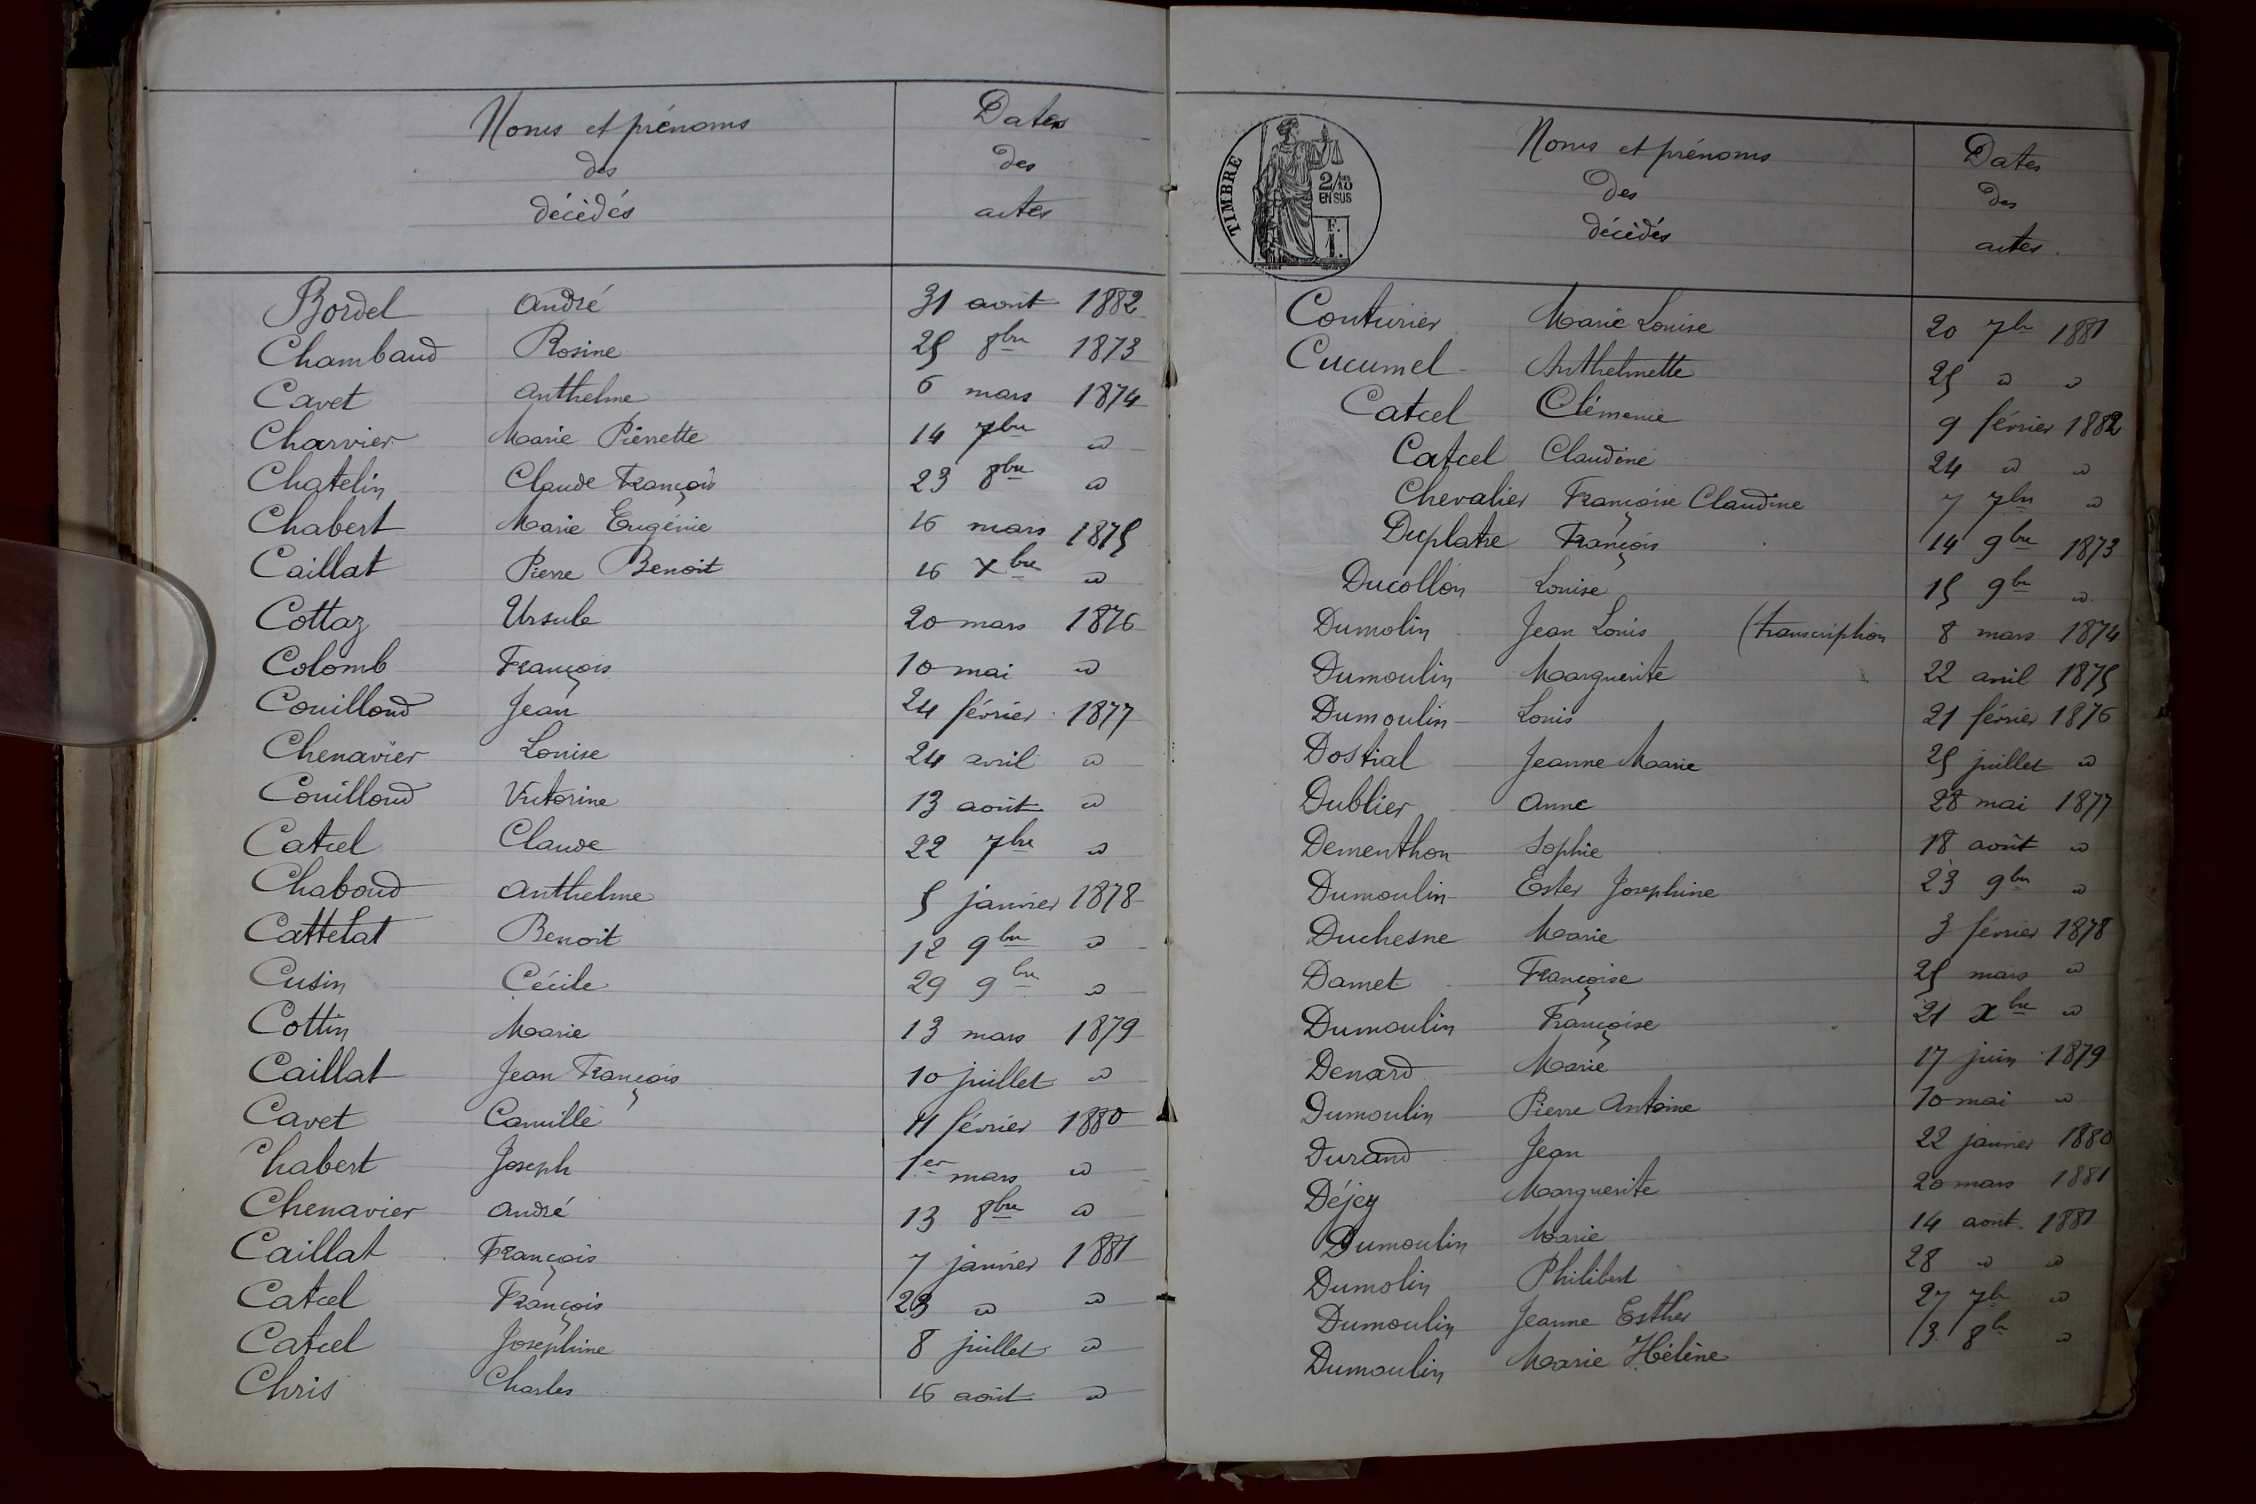 Noms et prénoms
des
décédés
Dates
des
actes
Bordel André 31 août 1882
Chambaud Rosine 25 8bre 1873
Cavet Anthelme 6 mars 1874
Charvier Marie Pierrette 14 7bre "
Chatelin Claude François 23 8bre "
Chabert Marie Eugénie 16 mars 1875
Caillat Pierre Benoit 16 Xbre "
Cottaz Ursule 20 mars 1876
Colomb François 10 mai "
Couilloud Jean 24 février 1877
Chenavier Louise 24 avril "
Couilloud Victorine 13 août "
Catcel Claude 22 7bre "
Chaboud Anthelme 5 janvier 1878
Cattelat Benoit 12 9bre "
Cusin Cécile 29 9bre "
Cottin Marie 13 mars 1879
Caillat Jean François 10 juillet "
Cavet Camille 11 février 1880
Chabert Joseph 1er mars "
Chenavier André 13 8bre "
Caillat François 7 janvier 1881
Catcel François 23 " "
Catcel Joséphine 8 juillet "
Chris Charles 16 août "
TIMBRE
2/10
EN SUS
F.
1.
Noms et prénoms
des
décédés
Dates
des
actes
Couturier Marie Louise 20 7bre 1881
Cucumel Anthelmette 25 " "
Catcel Clémence 9 février 1882
Catcel Claudine 24 " "
Chevalier Françoise Claudine 7 7bre "
Duplatre François 14 9bre 1873
Ducollon Louise 15 9bre "
Dumolin Jean Louis (transcription 8 mars 1874
Dumoulin Marguerite 22 avril 1875
Dumoulin Louis 21 février 1876
Dostial Jeanne Marie 25 juillet "
Dublier Anne 28 mai 1877
Dementhon Sophie 18 août "
Dumoulin Ester Josephine 23 9bre "
Duchesne Marie 3 février 1878
Damet Françoise 25 mars "
Dumoulin Françoise 21 Xbre "
Denard Marie 17 juin 1879
Dumoulin Pierre Antoine 10 mai "
Durand Jean 22 janvier 1880
Déjey Marguerite 20 mars 1881
Dumoulin Marie 14 août 1881
Dumolin Philibert 28 " "
Dumoulin Jeanne Esther 27 7bre "
Dumoulin Marie Hélène 13 8bre "